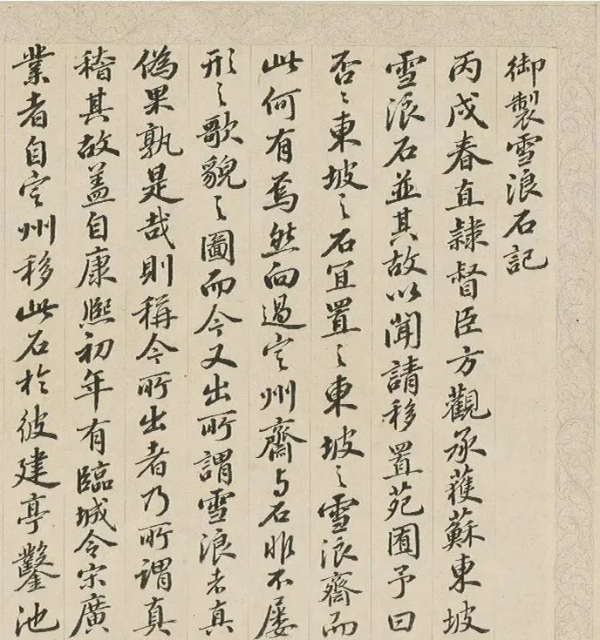 御製雪浪石記
丙戌春直隸督臣方觀承蒦蘇東坡
雪浪石並其故以聞請移置苑囿予曰
否〻東坡〻石宜置〻東坡〻雪浪齋而
此何有焉然向過定州齋與石非不屡
形〻歌貌〻圖而今又出所謂雪浪者真
偽果孰是哉則稱今所出者乃所謂真
稽其故盖自康熙初年有臨城令宋廣
業者自定州移此石於彼建亭鑿池